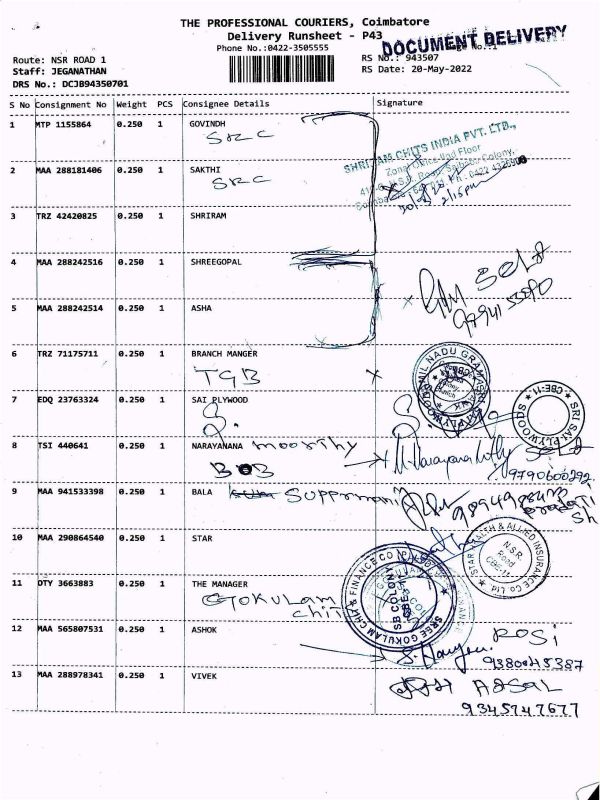 THE PROFESSIONAL COURIERS, Coimbatore
Delivery Runsheet - P43
DOCUMENT DELIVERY
Phone No.:0422-3505555
Route: NSR ROAD 1
RS No.: 943507
Staff: JEGANATHAN
RS Date: 20-May-2022
DRS No.: DCJB94350701
S No Consignment No Weight PCS Consignee Details Signature
1 MTP 1155864 0.250 1 GOVINDH
SRC
SHRIRAM CHITS INDIA PVT. LTD.,
Zonal Office IInd Floor
2 MAA 288181406 0.250 1 SAKTHI
SRC
2/15pm
3 TRZ 42420825 0.250 1 SHRIRAM
4 MAA 288242516 0.250 1 SHREEGOPAL
5 MAA 288242514 0.250 1 ASHA
6 TRZ 71175711 0.250 1 BRANCH MANGER
TGB
TAMIL NADU GRAMA
7 EDQ 23763324 0.250 1 SAI PLYWOOD
SRI SAI PLYWOODS
CBE-11
8 TSI 440641 0.250 1 NARAYANANA moorthy
BOB
9790600292
9 MAA 941533398 0.250 1 BALA
10 MAA 290864540 0.250 1 STAR
STAR HEALTH & ALLIED INSURANCE Co Ltd
N.S.R.
Road
CBE-11
11 DTY 3663883 0.250 1 THE MANAGER
GOKULAM
chit
SREE GOKULAM CHIT & FINANCE CO (P) LTD
SB COLONY
12 MAA 565807531 0.250 1 ASHOK
ROSI
9380045387
13 MAA 288978341 0.250 1 VIVEK
9345747677